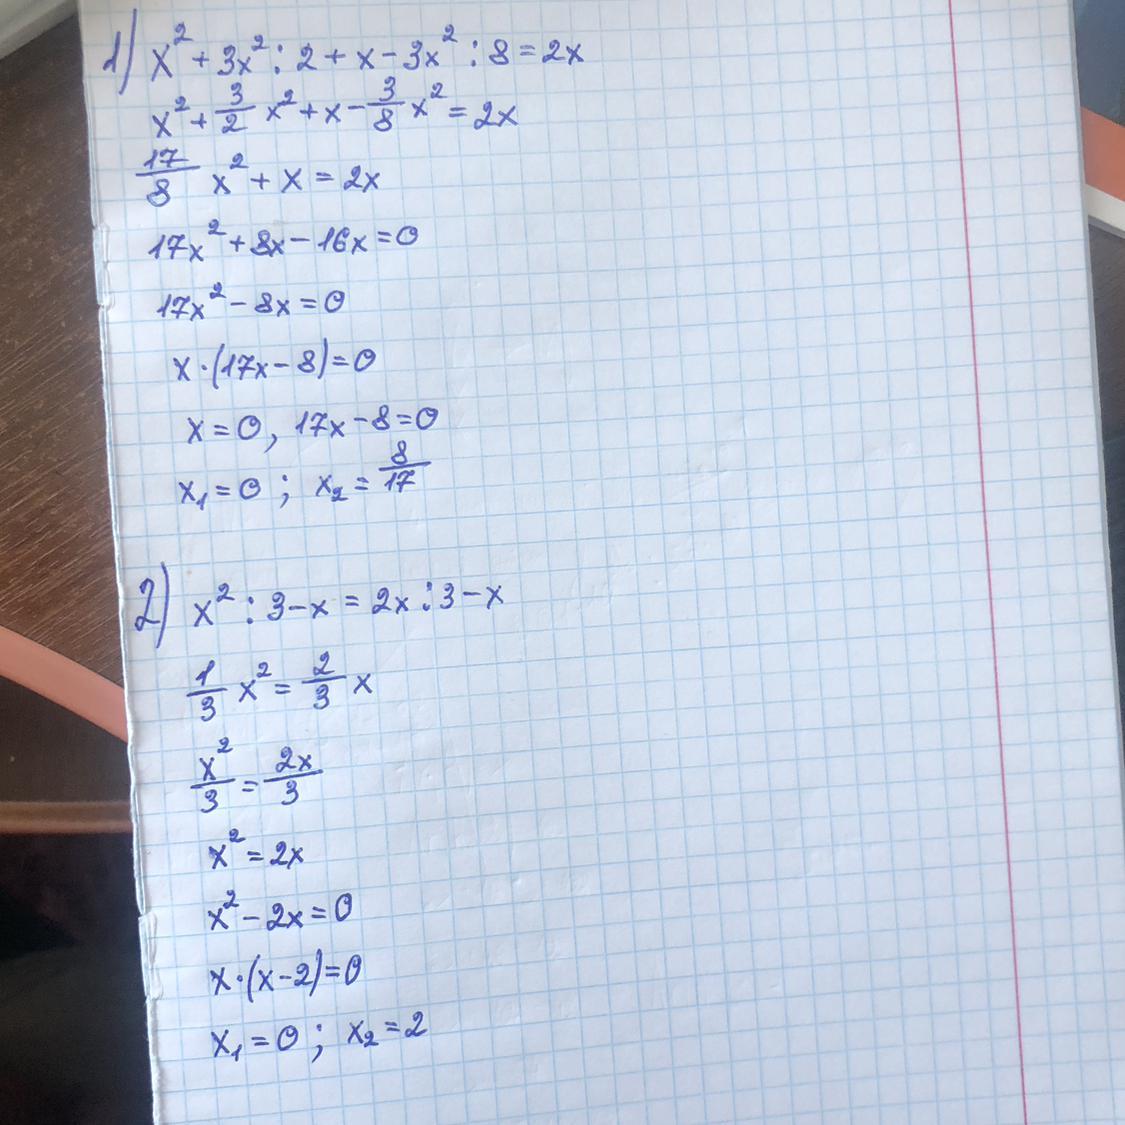 1) x² + 3x² : 2 + x - 3x² : 8 = 2x
x² + 3/2 x² + x - 3/8 x² = 2x
17/8 x² + x = 2x
17x² + 8x - 16x = 0
17x² - 8x = 0
x · (17x - 8) = 0
x = 0, 17x - 8 = 0
x₁ = 0 ; x₂ = 8/17
2) x² : 3 - x = 2x : 3 - x
1/3 x² = 2/3 x
x²/3 = 2x/3
x² = 2x
x² - 2x = 0
x · (x - 2) = 0
x₁ = 0 ; x₂ = 2